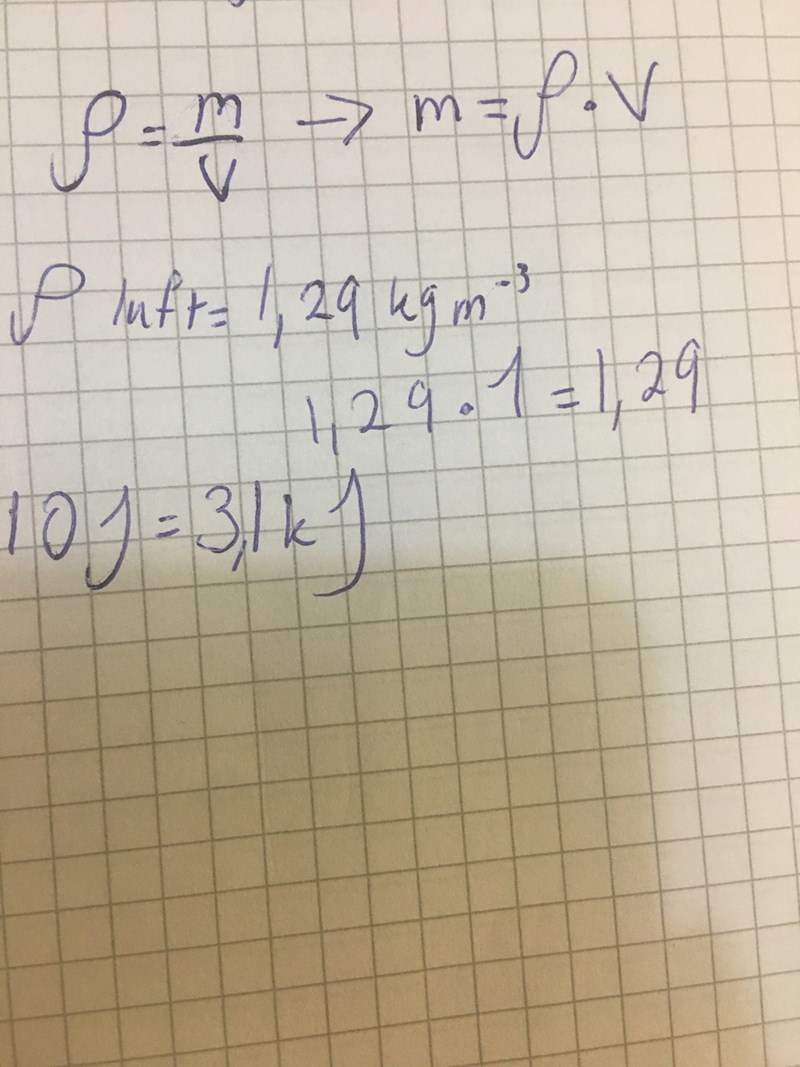 ρ = m/V → m = ρ · V
ρ luft = 1,29 kg m⁻³
1,29 · 1 = 1,29
10 J = 3,1 kJ